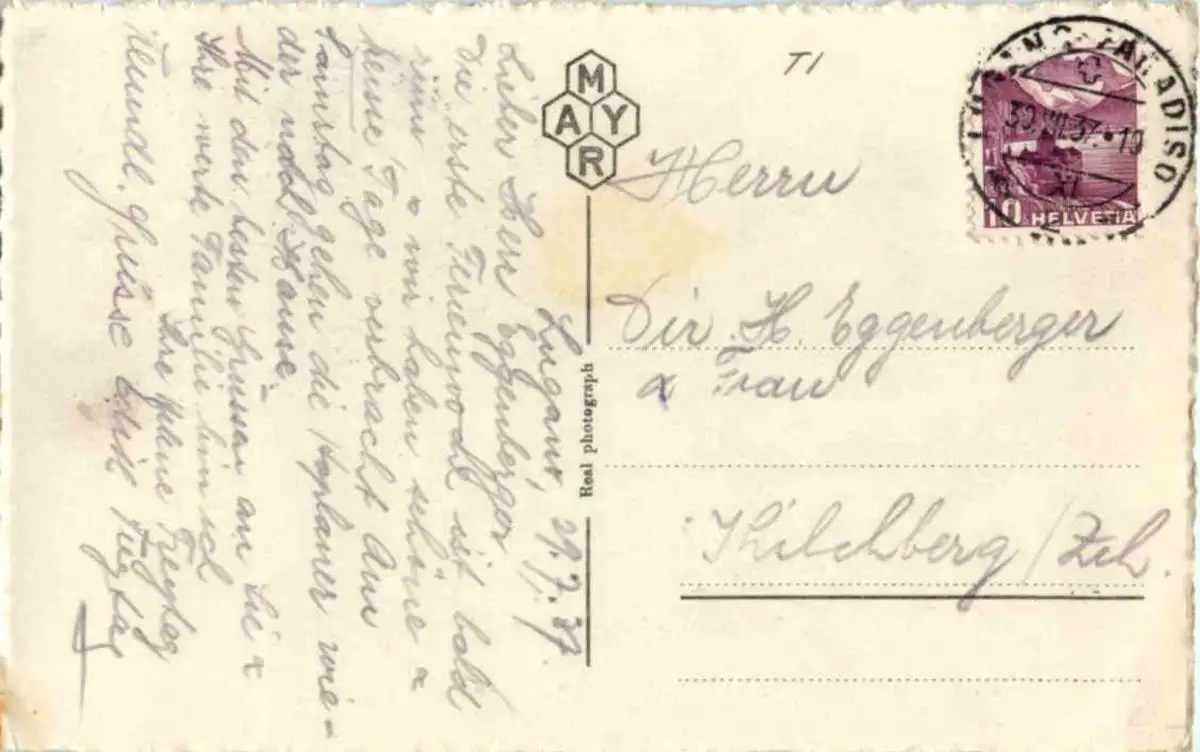 Lugano, 29.7.37.
Lieber Herr Eggenberger
Die erste Ferienwoche ist bald
& wir haben schöne &
Tage verbracht. Am
Samstag gehen die Kaplaner wie-
der nach Hause.
Mit den besten Grüssen an Sie &
Ihre werte Familie bin ich
Ihre Freytag
Freundl. Grüsse
MAYR
Real photograph
TI
Herrn
Dir. H. Eggenberger
& Frau
Kilchberg / Zch.
LUGANO-PARADISO
30.VII.37.-19
10 HELVETIA